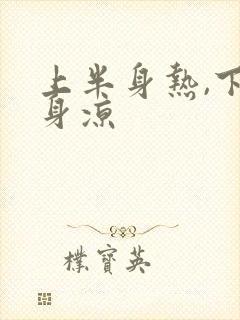 上半身熱,下
身涼
樸寶英